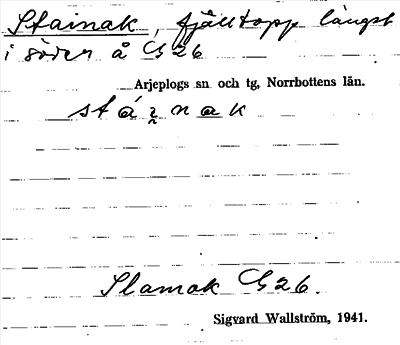 Stainak, fjälltopp längst
i söder å G 26
Arjeplogs sn och tg, Norrbottens län.
stái̯nak
Slamok G 26.
Sigvard Wallström, 1941.